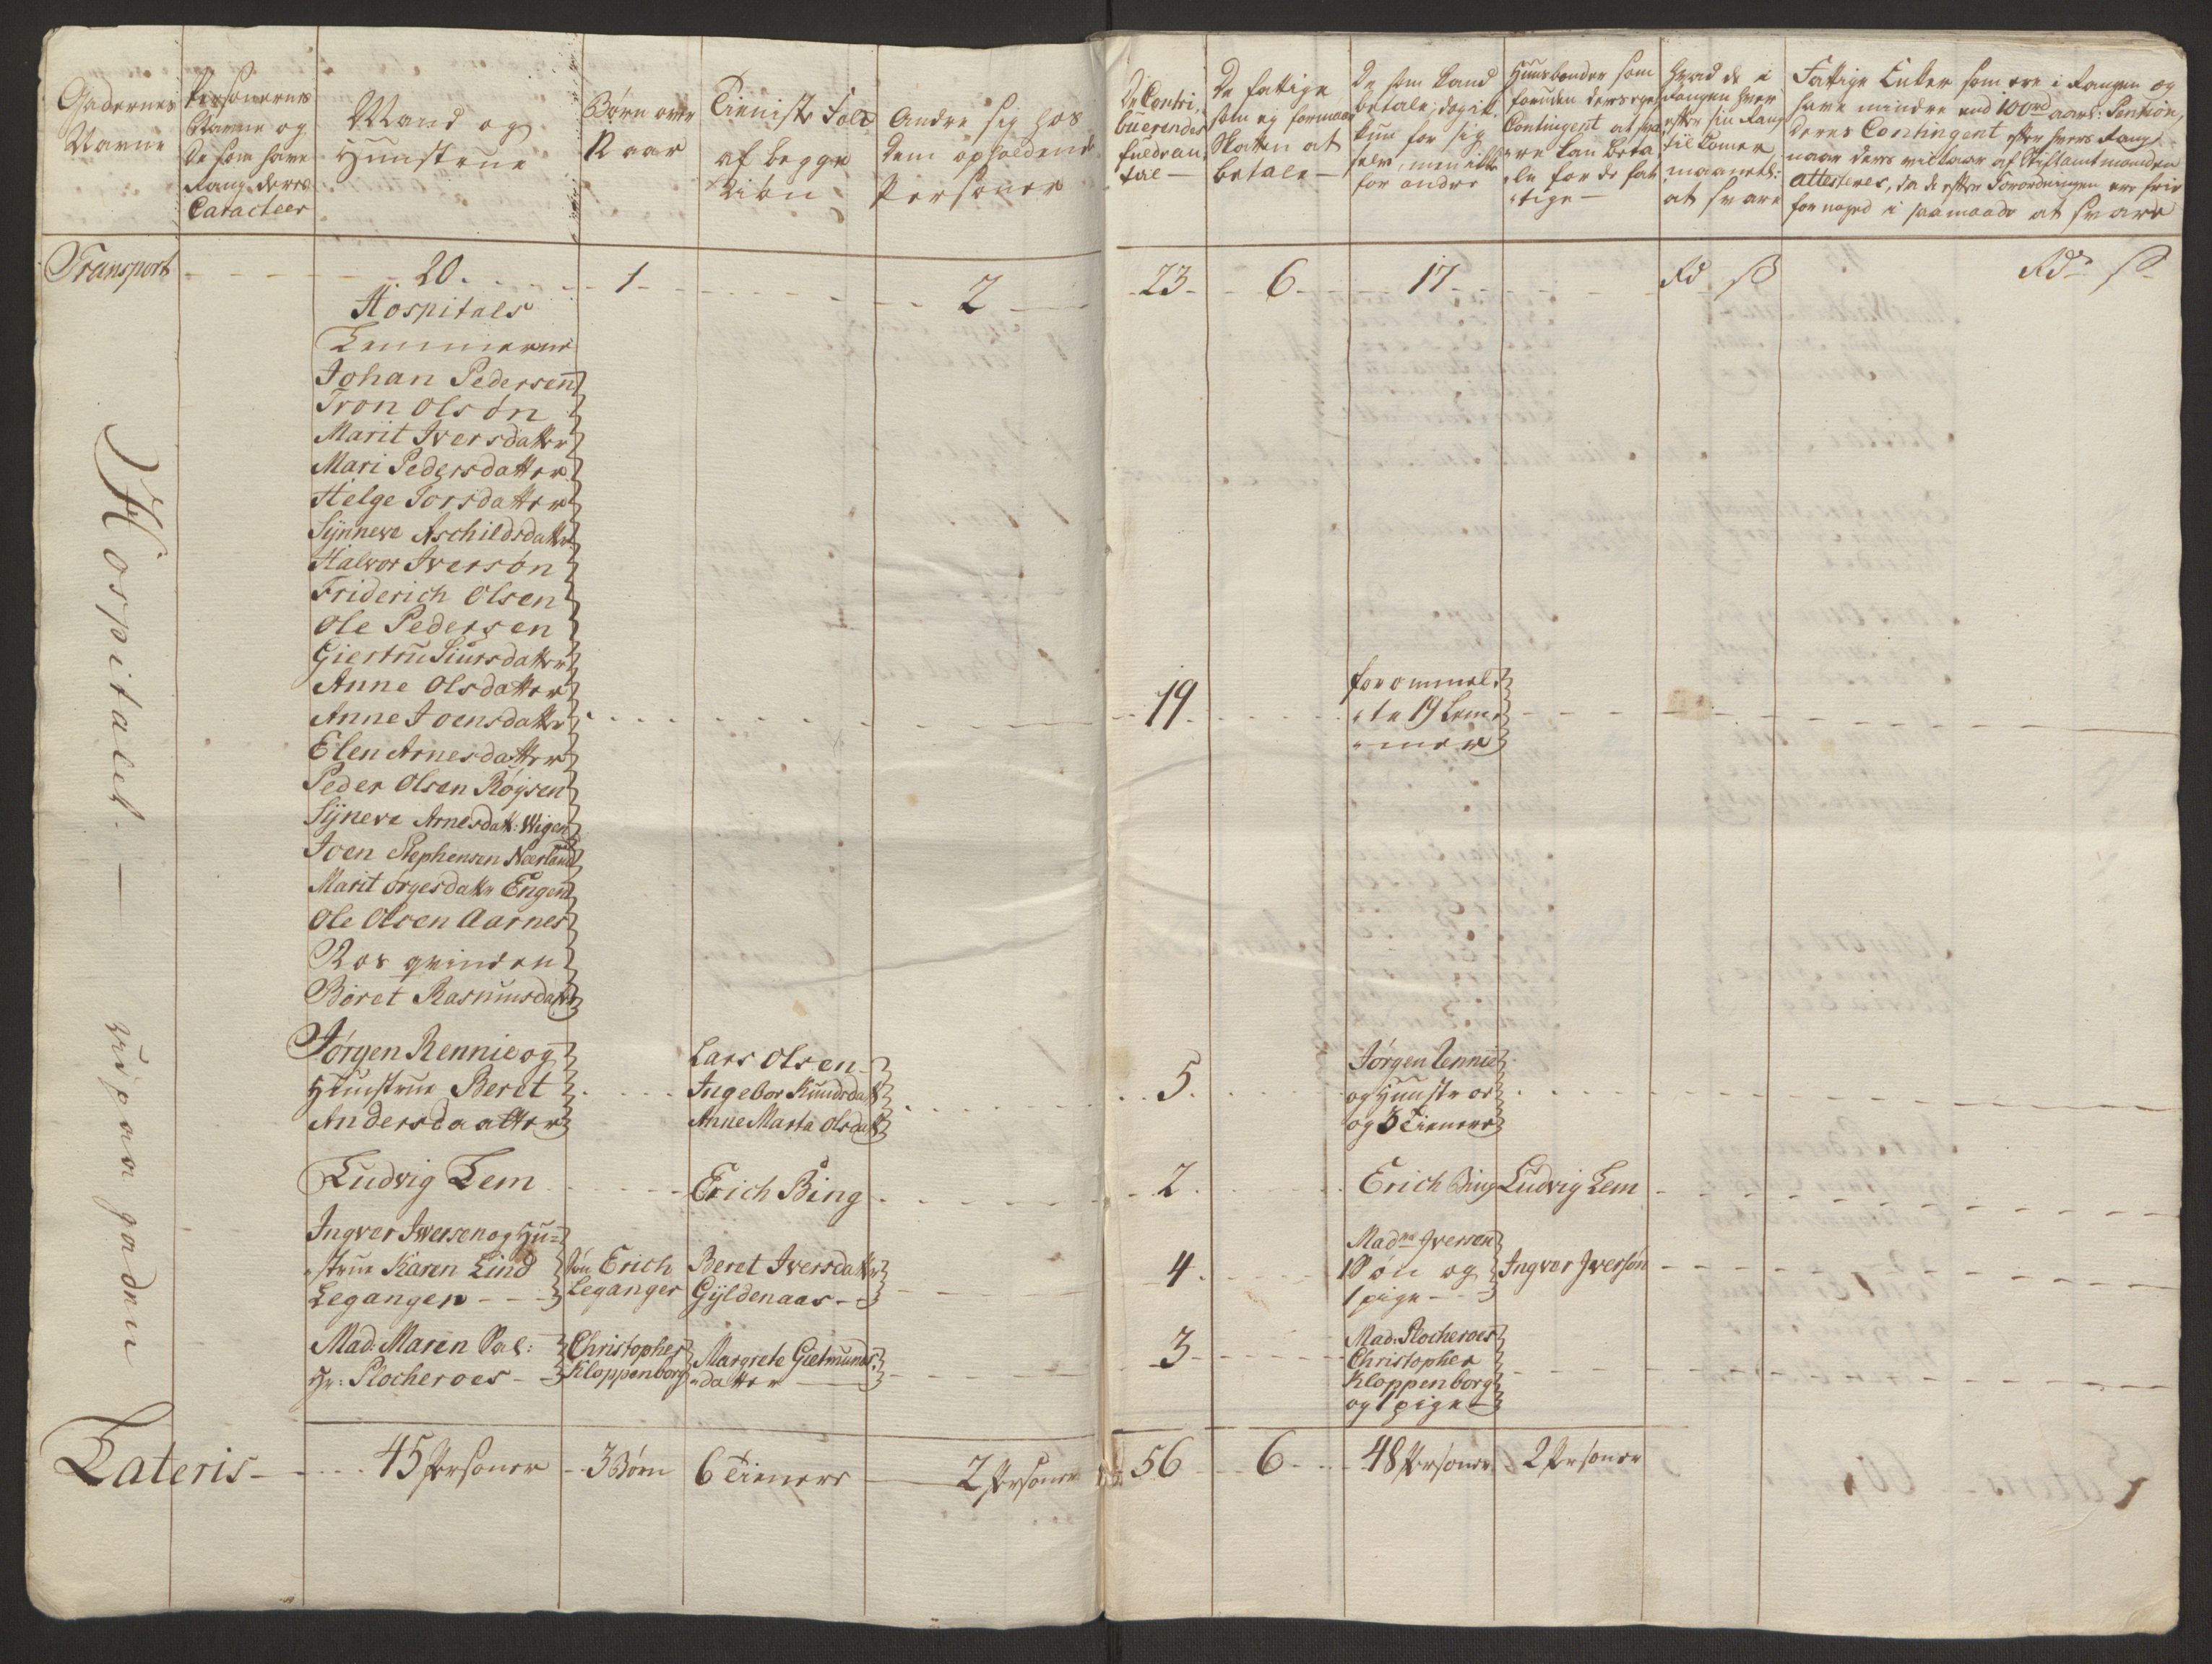 Gadernes
Navne
Personernes
Navne og
De som have
Rang deres
Caracteer
Mand og
Hunstrue
Børn over
12 aar
Tieniste Folk
af begge
Kiøn
Andre sig hos
dem opholdende
Personer
De Contri
buerendes
fulde an
tal —
De fattige
som ej formaaer
Skatten at
betale —
De som kand
betale, dog ikke
kun for sig
selv, men ikke
for andre
Huusbonder som
foruden deres eget
Contingent at sva
re kan beta
le for de fat
tige —
Hvad de i
Rangen hver
efter sin Rang
til kommer
maanedl:
at svare
Fattige Enker som ere i Rangen og
have mindre end 100rd aarl: Pention,
deres Contingent efter hvers Rang,
naar deres vilkaar af Stiftamtmanden
attesteres, da de efter Forordningen ere frie
for noged i saamaade at svare
Transport - - - 20. - - 1 - - - 2 — 23 - - 6 - - 17 - - Rd ß Rdr ß
Hospitals
Lemmerne
Johan Pedersen
Tron Olsøn
Marit Iversdatter
Mari Pedersdatter
Helge Torsdatter
Synneve Aschildsdatter
Halvor Iversøn
Friderich Olsen
Ole Pedersen
Giertru Siursdatter
Anne Olsdatter
Anne Joensdatter
Elen Arnesdatter
Peder Olsen Røysen
Synneve Arnesdatt: Wigen
Joen Stephensen Nerland
Marit ørgesdattr Engen
Ole Olsen Aarnes
Ros qvinden
Beret Rasmusdatter
19.
forommel
te 19 Lem
mer
Hospitalet. —
Vripaa gaden
Jørgen Rennie og
Hunstrue Beret
Andersdaatter
Lars Olsen
Ingebor Knudsdatt
Anne Marta Olsdatt
5.
Jørgen Rennie
og Hunstroe
og 3 Tienere
Ludvig Lem - - - Erich Bing - - - 2. - - Erich Bing Ludvig Lem
Ingver Iversen og Hu=
strue Karen Lind
Legangen - - -
Søn Erich
Leganger
Beret Iversdatter
Gyldenaas -
4.
Madme Iversen
1 Søn og
1 pige -
Ingver Iversøn
Mad: Maren Sal:
Hr: Plocheroes -
Christopher
Kloppenborg
Margrete Gietmunds
datter —
3
Mad: Plocheroes
Christopher
Kloppenborg
og 1 pige
Lateris - - - 45 Personer - 3 Børn 6 Tienere — 2 Personer 56 - - 6 - - 48 Personer 2 Personer